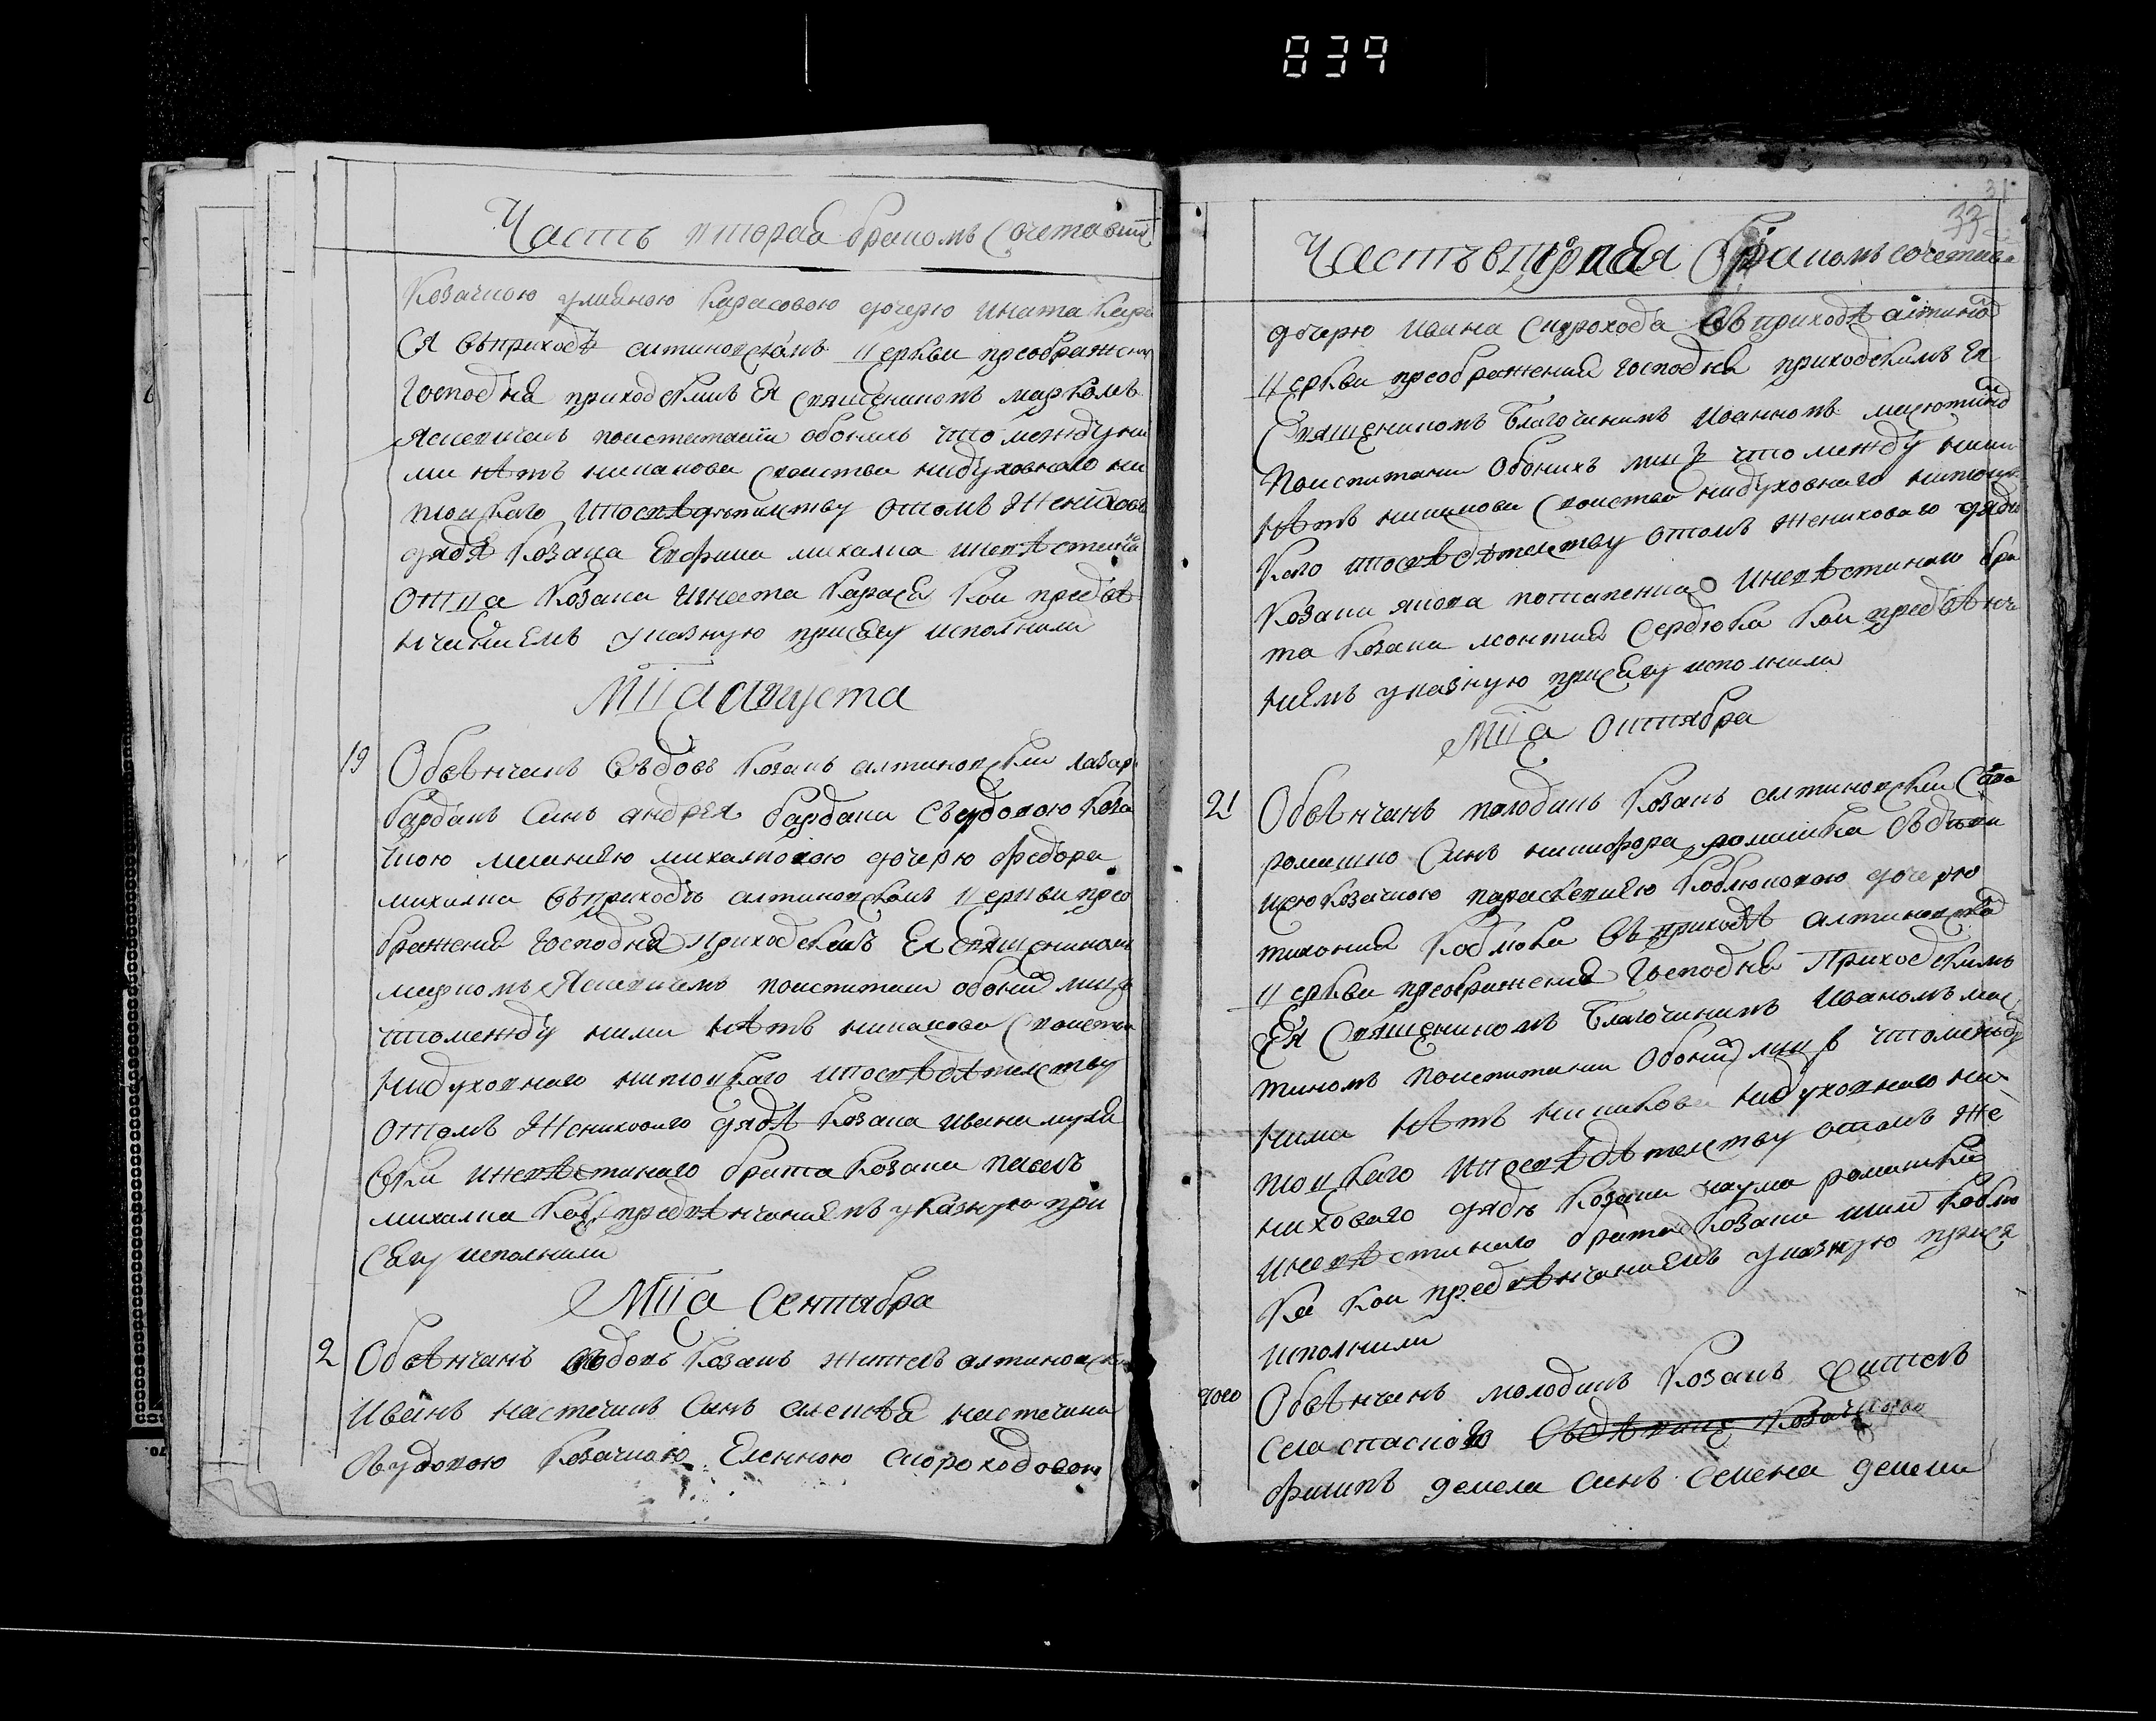 839
Часть вторая браком сочетавш
Козачкою улияною Карасовою дочерю игната Кара
ся въ приходѣ алтиновском церкви преображения
Господня приходским Ея священиком марком
Ясневичем по испитании обоих что между ни
ми нѣтъ никакова своиства ни духовнаго ни
плоцкаго и по свѣдителству о том Жениховаго
дядѣ Козака михалка и невѣстинаго
Отца Козака Игната Карася Кои пред вѣ
нчаниемъ указную присягу исполнили
Мца августа
19 Обвѣнчанъ вдовъ Козакъ алтиновски лазар
бардакъ синъ андрея бардака съ удовою Коза
чкою меланиею михалковою дочерю федора
михалка въ приходѣ алтиновском церкви прео
бражения Господня Приходскимъ Ея священиком
марком Ясневичем по испитании обоих лицъ
что между ними нѣтъ никакова своиства
ни духовнаго ни плоцкаго и по свѣдѣтелству
о томъ Жениховаго дядѣ Козака ивана
и невѣстинаго брата Козака
михалка Кои пред вѣнчаниемъ указную при
сягу исполнили
Мца Сентября
2 Обвѣнчанъ вдовъ Козакъ житель алтиновски
Иванъ настечикъ синъ алексѣя настечика
въ удовою Козачкою Еленною скороходовою
31
33
Часть вторая браком сочетав
дочерю ивана скорохода въ приходѣ алтинов
церкви преображения Господня приходскимъ Ея
Священиком Благочиним Иоанном
По испитании обоихъ лицъ что между ними
нѣтъ никакова своиства ни духовнаго ни плоц
Каго и по свѣдѣтелству о томъ жениховаго дяди
Козака якова и невѣстинаго бра
та Козака леонтия Сердюка Кои пред вѣнча
ниемъ указную присягу исполнили
Мца Октября
21 Обвѣнчанъ молодикъ Козакъ алтиновски Сава
ромашко синъ никифора ромашка съ дѣви
цею Козачкою параскевиею Коблюковою дочерю
тихония Коблюка въ приходѣ алтиновской
церкви преображения Господня Приходскимъ
Ея Священиком Благочиним Иваном мак
тином По испитании обоих лицъ что между
ними нѣтъ никакова ни духовнаго ни
плоцкаго и по свѣдѣтелству о томъ же
ниховаго дядѣ Козака наума ромашка
и невѣстинаго брата Козака Коблю
ка Кои пред вѣнчаниемъ указную прися
исполнили
Обвѣнчанъ молодикъ Козакъ житель
села спаского
демела синъ семена демели